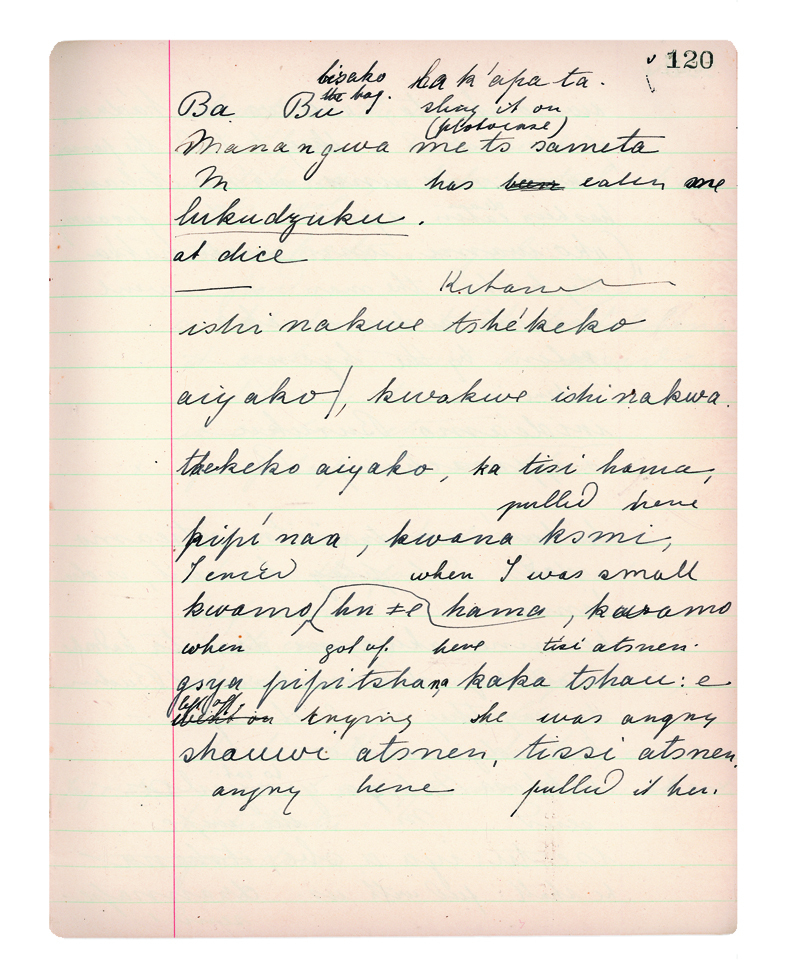 120
bisako ha k'apa ta.
Ba Bu the bag. sling it on
(plotoense)
Manangwa me ts sameta
M has been eaten me
lukudzuku.
at dice
ishi nakwe tshékeko
aiyako), kwakwe ishinakwa.
thekeko aiyako, ka tisi hama,
pulled here
pipí naa, kwana ksmi,
I cried when I was small
kwamo (hn ≠e hama, kwamo
when got up. here tisi atsnen.
gsya pipitshana kaka tshau: e
left off went on crying she was angry
shauwi atsnen, tissi atsnen.
angry here pulled it her.